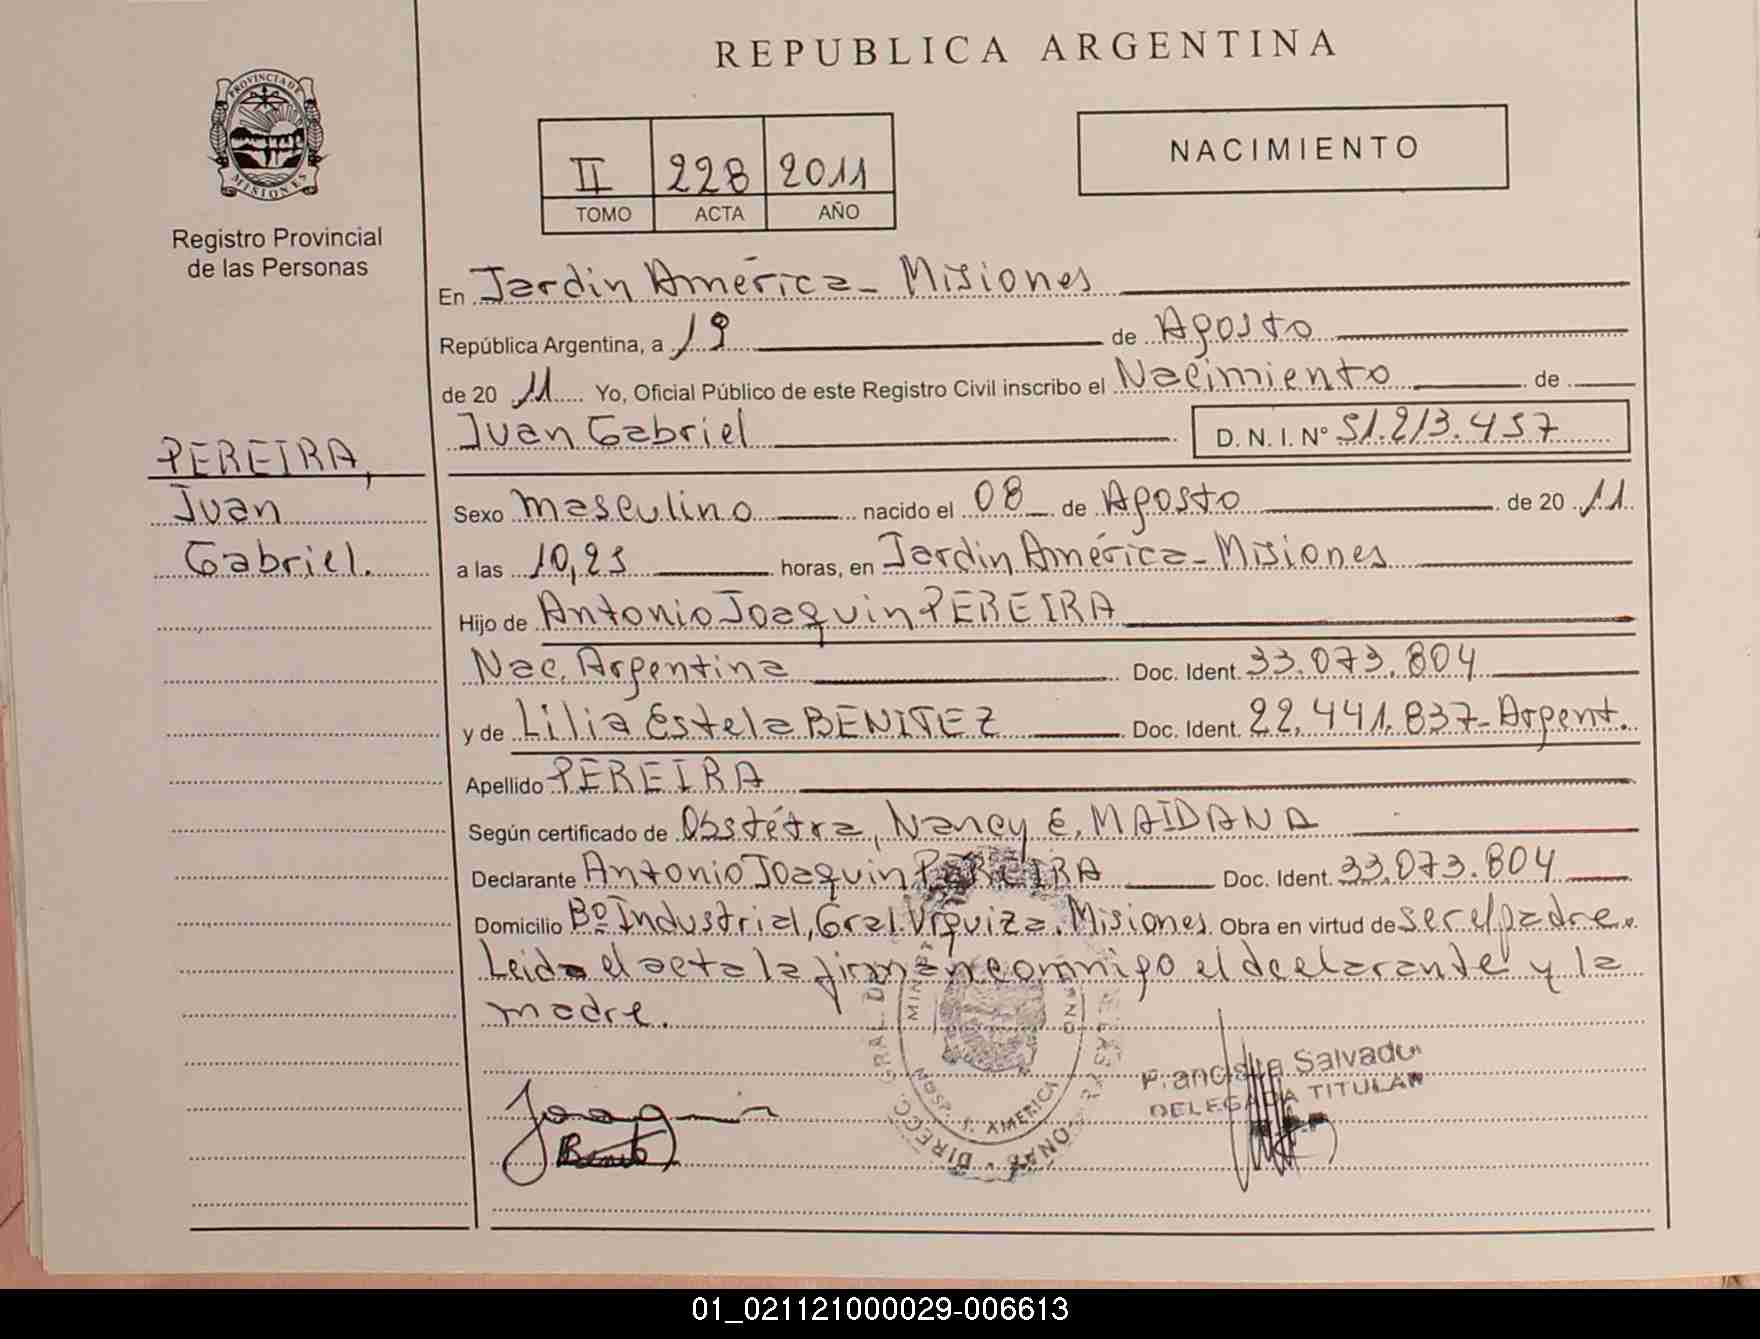 REPUBLICA ARGENTINA
PROVINCIA DE MISIONES
Registro Provincial
de las Personas
II 228 2011
TOMO ACTA AÑO
NACIMIENTO
PEREIRA,
Juan
Gabriel.
En Jardin América - Misiones
República Argentina, a 19 de Agosto
de 20 11 Yo, Oficial Público de este Registro Civil inscribo el Nacimiento de
Juan Gabriel D. N. I. Nº 51.213.457
Sexo masculino nacido el 08 de Agosto de 20 11
a las 10,25 horas, en Jardin América - Misiones
Hijo de Antonio Joaquin PEREIRA
Nac. Argentina Doc. Ident. 33.073.804
y de Lilia Estela BENITEZ Doc. Ident. 22.441.837 - Argent.
Apellido PEREIRA
Según certificado de Obstétra, Nancy E. MAIDANA
Declarante Antonio Joaquin PEREIRA Doc. Ident. 33.073.804
Domicilio Bº Industrial, Gral. Urquiza. Misiones Obra en virtud de ser el padre.
Leida el acta la firman conmigo el declarante y la
madre.
HOSP. J. AMERICA
Joaquin
Francisca Salvador
DELEGADA TITULAR
01_021121000029-006613